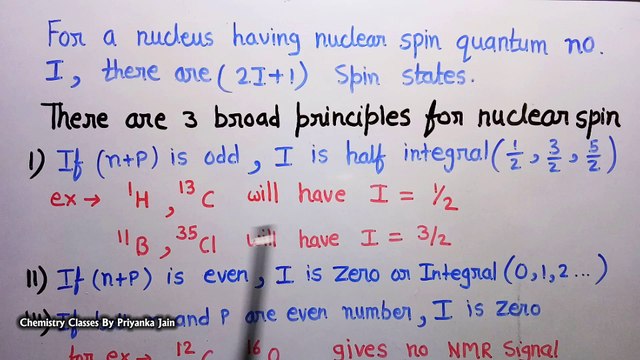 For a nucleus having nuclear spin quantum no.
I, there are (2I+1) Spin states.
There are 3 broad principles for nuclear spin
I) If (n+p) is odd, I is half integral (1/2, 3/2, 5/2)
ex → ¹H, ¹³C will have I = 1/2
¹¹B, ³⁵Cl will have I = 3/2
II) If (n+p) is even, I is zero or Integral (0,1,2...)
and P are even number, I is zero
for ex → ¹²C ¹⁶O gives no NMR Signal
Chemistry Classes By Priyanka Jain